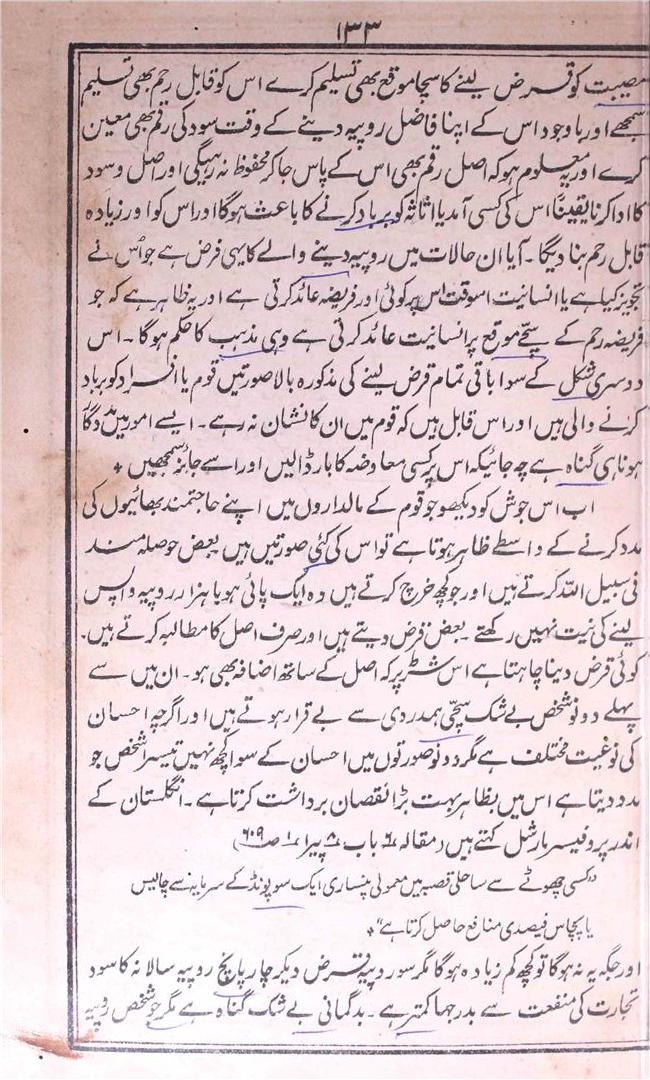 ۱۳۳
مصیبت کو قرض لینے کا سچا موقع بھی تسلیم کرے اس کو قابل رحم بھی تسلیم
سمجھے اور باوجود اس کے اپنا فاضل روپیہ دینے کے وقت سود کی رقم بھی معین
کرے اور یہ معلوم ہو کہ اصل رقم بھی اس کے پاس جا کر محفوظ نہ رہیگی اور اصل و سود
کا ادا کرنا یقیناً اس کی کسی آمد یا اثاثہ کو برباد کرنے کا باعث ہوگا اور اس کو اور زیادہ
قابل رحم بنا دیگا۔ آیا ان حالات میں روپیہ دینے والے کا یہی فرض ہے جو اُس نے
تجویز کیا ہے یا انسانیت اسوقت اس پر کوئی اور فریضہ عائد کرتی ہے اور یہ ظاہر ہے کہ جو
فریضہ رحم کے سچے موقع پر انسانیت عائد کرتی ہے وہی مذہب کا حکم ہوگا۔ اس
دوسری شکل کے سوا باقی تمام قرض لینے کی مذکورہ بالا صورتیں قوم یا افراد کو برباد
کرنے والی ہیں اور اس قابل ہیں کہ قوم میں ان کا نشان نہ رہے۔ ایسے امور میں مددگار
ہونا ہی گناہ ہے چہ جائیکہ اس پر کسی معاوضہ کا بار ڈالیں اور اسے جائز سمجھیں +
اب اس جوش کو دیکھو جو قوم کے مالداروں میں اپنے حاجتمند بھائیوں کی
مدد کرنے کے واسطے ظاہر ہوتا ہے تو اس کی کئی صورتیں ہیں بعض حوصلہ مند
فی سبیل اللہ کرتے ہیں اور جو کچھ خرچ کرتے ہیں وہ ایک پائی ہو یا ہزار روپیہ واپس
لینے کی نیت نہیں رکھتے۔ بعض قرض دیتے ہیں اور صرف اصل کا مطالبہ کرتے ہیں۔
کوئی قرض دینا چاہتا ہے اس شرط پر کہ اصل کے ساتھ اضافہ بھی ہو۔ ان میں سے
پہلے دونو شخص بے شک سچی ہمدردی سے بے قرار ہوتے ہیں اور اگرچہ احسان
کی نوعیت مختلف ہے مگر دونو صورتوں میں احسان کے سوا کچھ نہیں تیسرا شخص جو
مدد دیتا ہے اس میں بظاہر بہت بڑا نقصان برداشت کرتا ہے۔ انگلستان کے
اندر پروفیسر مارشل کہتے ہیں (مقالہ ۶ باب ۸ پیرا ۱ ص ۶۰۹)
"کسی چھوٹے سے ساحلی قصبہ میں معمولی پنساری ایک سو پونڈ کے سرمایہ سے چالیس
یا پچاس فیصدی منافع حاصل کرتا ہے" +
اور جگہ یہ نہ ہوگا تو کچھ کم زیادہ ہوگا مگر سو روپیہ قرض دیکر چار پانچ روپیہ سالانہ کا سود
تجارت کی منفعت سے بدرجہا کمتر ہے۔ بدگمانی بے شک گناہ ہے مگر جو شخص روپیہ